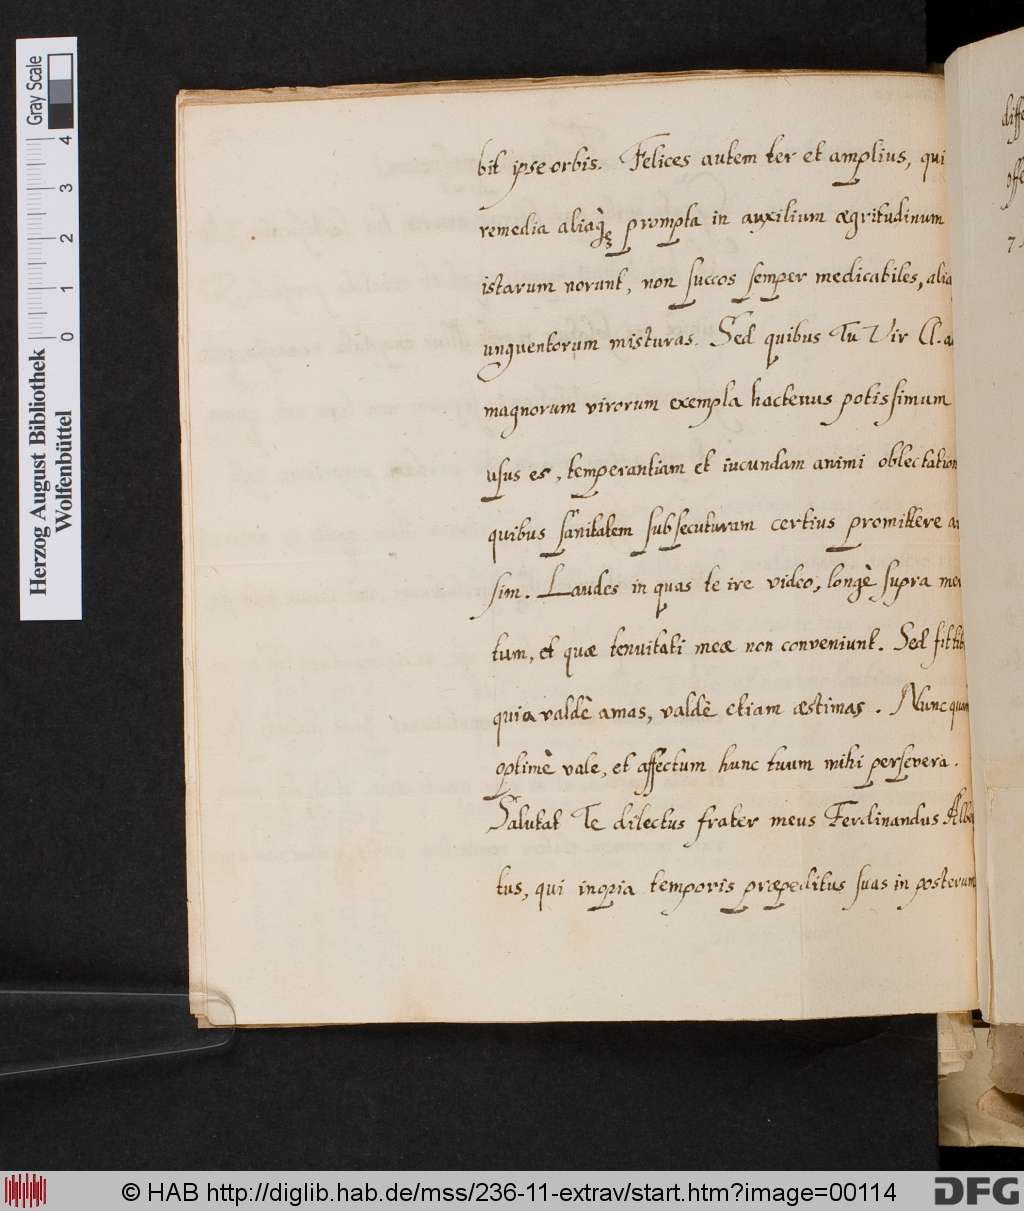 bit ipse orbis. Felices autem ter et amplius, qui
remedia aliaq̀ꝫ prompta in auxilium ægritudinum
istarum norunt, non succos semper medicabiles, alia
unguentorum misturas. Sed quibus Tu Vir Cl. a
magnorum virorum exempla hactenus potissimum
usus es, temperantiam et iucundam animi oblectation
quibus sanitatem subsecuturam certius promittere a
sim. Laudes in quas te ire video, longè supra me
tum, et quæ tenuitati meæ non conveniunt. Sed
quia valdè amas, valdè etiam æstimas. Nunc quàm
optimè vale, et affectum hunc tuum mihi persevera.
Salutat Te dilectus frater meus Ferdinandus Albe
tus, qui inopia temporis præpeditus suas in posterum
diffe
offe
7.
Herzog August Bibliothek
Wolfenbüttel
0 1 2 3 4
Gray Scale
© HAB http://diglib.hab.de/mss/236-11-extrav/start.htm?image=00114
DFG